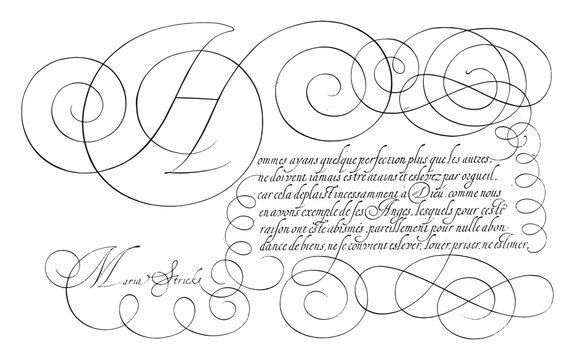 Hommes ayans quelque perfection plus que les autres,
ne doivent iamais estre atains et eslevez par orgueil,
car cela deplaist incessamment à Dieu. comme nous
en avons exemple de ses Anges, lesquels pour ceste
raison ont esté abismés, pareillement pour nulle abon-
dance de biens, ne se convient eslever, louer, priser, ne estimer.
Maria Strick